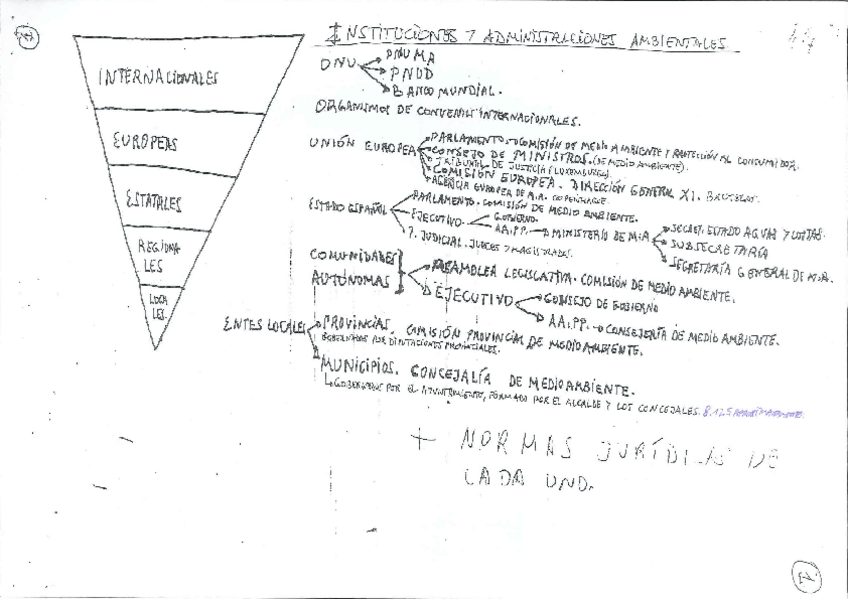 INSTITUCIONES Y ADMINISTRACIONES AMBIENTALES
INTERNACIONALES
EUROPEAS
ESTATALES
REGIONA
LES
LOCA
LES.
ONU
PNUMA
PNUD
BANCO MUNDIAL.
ORGANISMOS DE CONVENIOS INTERNACIONALES.
UNIÓN EUROPEA
PARLAMENTO → COMISIÓN DE MEDIO AMBIENTE Y PROTECCIÓN AL CONSUMIDOR.
CONSEJO DE MINISTROS. (DE MEDIO AMBIENTE).
TRIBUNAL DE JUSTICIA (LUXEMBURGO).
COMISIÓN EUROPEA. DIRECCIÓN GENERAL XI. BRUSELAS.
AGENCIA EUROPEA DE M.A. COPENHAGUE.
ESTADO ESPAÑOL
PARLAMENTO. COMISIÓN DE MEDIO AMBIENTE.
EJECUTIVO
GOBIERNO.
AA.PP. → MINISTERIO DE M.A
SECRET. ESTADO AGUAS Y COSTAS.
SUBSECRETARÍA
SECRETARÍA GENERAL DE M.A.
P. JUDICIAL. JUECES Y MAGISTRADOS.
COMUNIDADES
AUTÓNOMAS
ASAMBLEA LEGISLATIVA. COMISIÓN DE MEDIO AMBIENTE.
EJECUTIVO
CONSEJO DE GOBIERNO
AA.PP. → CONSEJERÍA DE MEDIO AMBIENTE.
ENTES LOCALES
PROVINCIAS. COMISIÓN PROVINCIAL DE MEDIO AMBIENTE.
GOBERNADAS POR DIPUTACIONES PROVINCIALES.
MUNICIPIOS. CONCEJALÍA DE MEDIO AMBIENTE.
GOBERNADOS POR EL AYUNTAMIENTO, FORMADO POR EL ALCALDE Y LOS CONCEJALES. 8.125
+ NORMAS JURÍDICAS DE
CADA UNO.
1